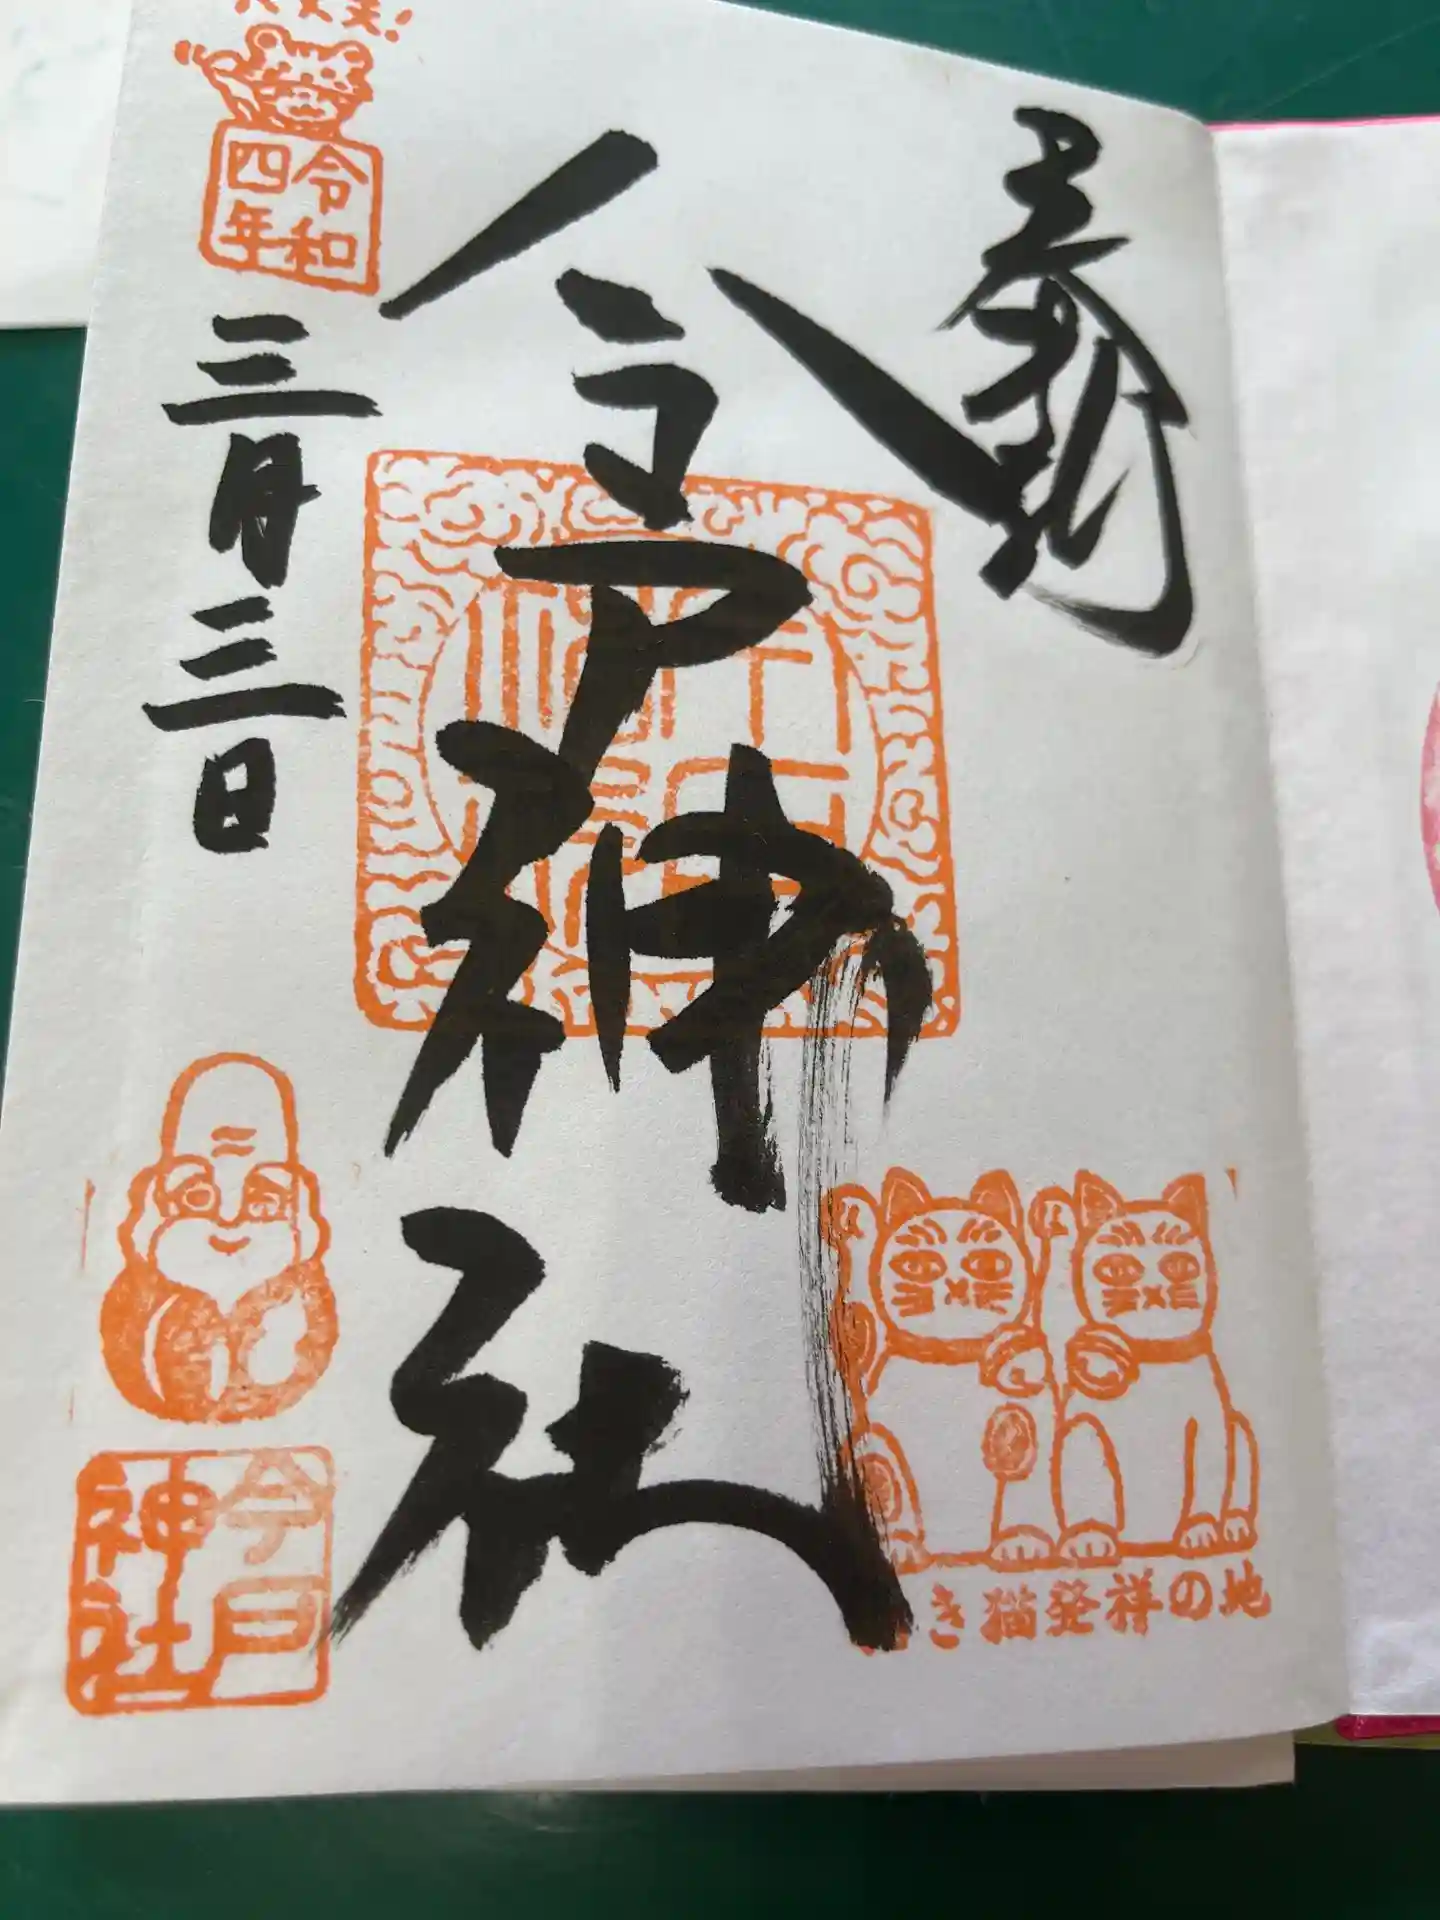 奉拝
今戸神社
招き猫発祥の地
大丈夫!
令和
四年
三月三日
今戸
神社